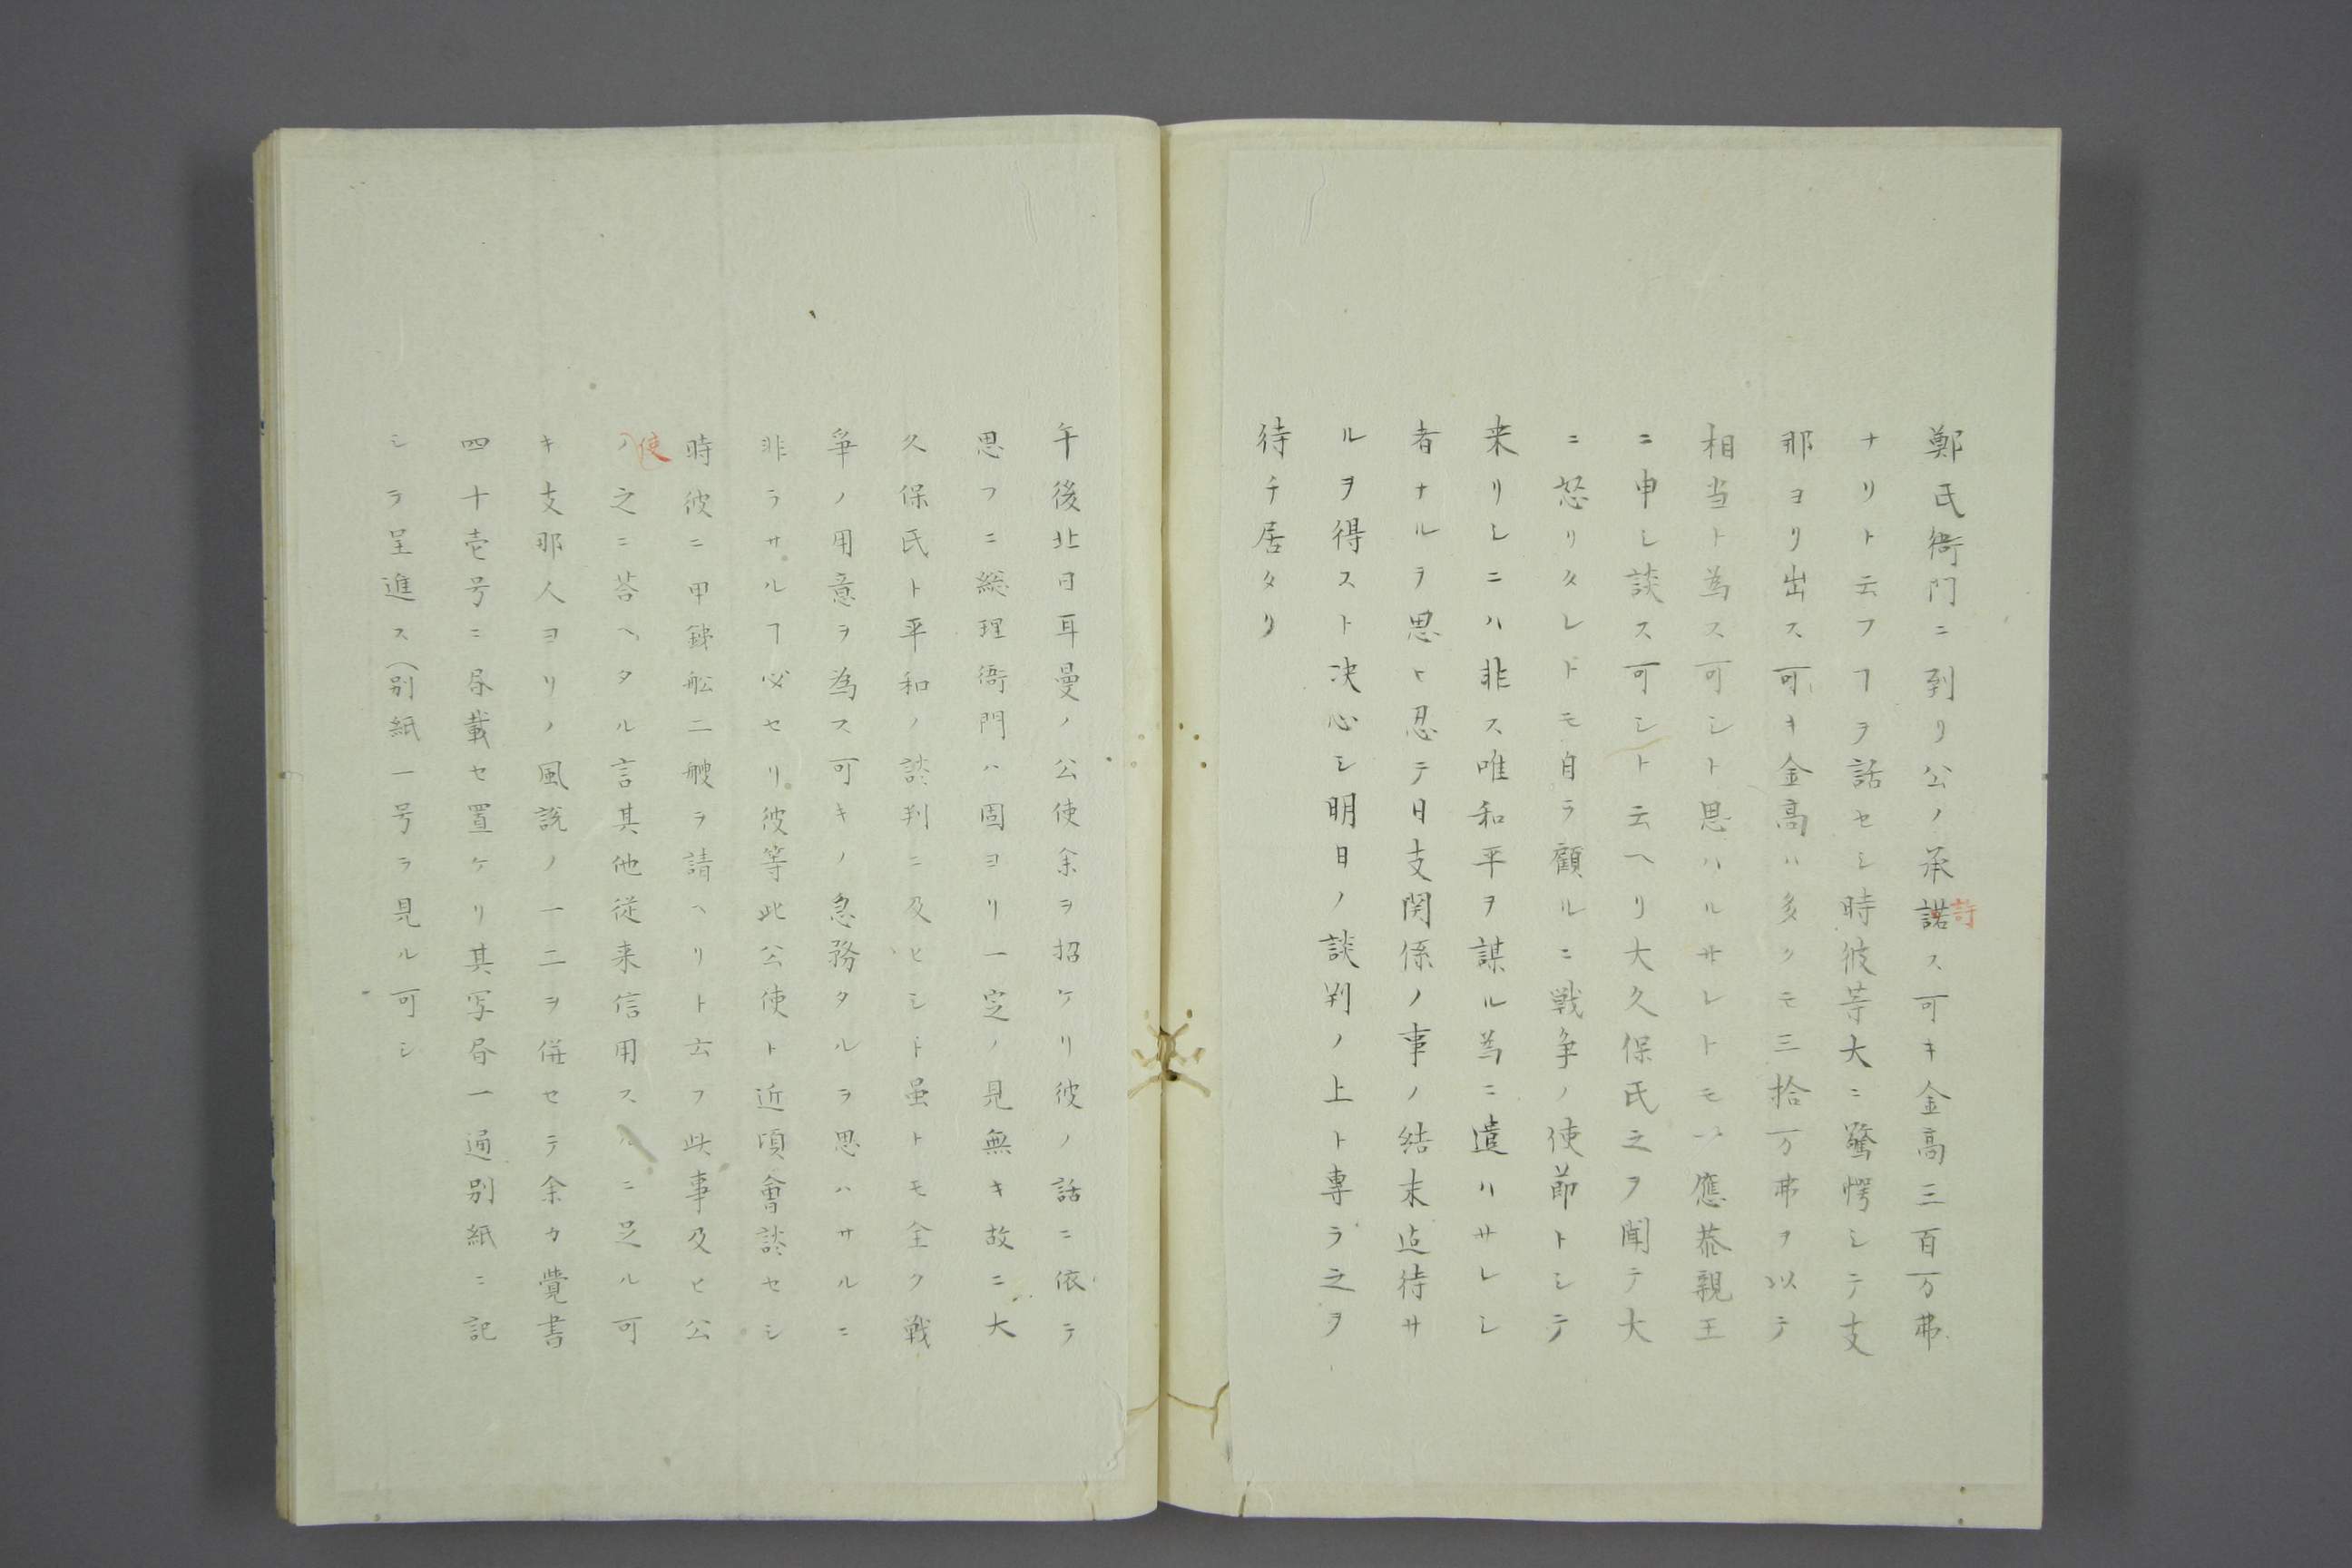 鄭氏衙門ニ到リ公ノ承諾ス可キ金高三百万弗
許
ナリト云フヿヲ話セシ時彼等大ニ驚愕シテ支
那ヨリ出ス可キ金高ハ多クモ三拾万弗ヲ以テ
相当ト為ス可シト思ハルサレトモ一應恭親王
ニ申シ談ス可シト云ヘリ大久保氏之ヲ聞テ大
ニ怒リタレドモ自ラ顧ルニ戦争ノ使節トシテ
来リシニハ非ス唯和平ヲ謀ル為ニ遣ハサレシ
者ナルヲ思ヒ忍テ日支関係ノ事ノ結末迠待サ
ルヲ得スト决心シ明日ノ談判ノ上ト専ラ之ヲ
待チ居タリ
午後北日耳曼ノ公使余ヲ招ケリ彼ノ話ニ依テ
思フニ総理衙門ハ固ヨリ一定ノ見無キ故ニ大
久保氏ト平和ノ談判ニ及ヒシト虽トモ全ク戦
争ノ用意ヲ為ス可キノ急務タルヲ思ハサルニ
非ラサルヿ必セリ彼等此公使ト近頃會談セシ
時彼ニ甲銕舩二艘ヲ請ヘリト云フ此事及ヒ公
使
ノ之ニ荅ヘタル言其他従来信用スルニ足ル可
キ支那人ヨリノ風説ノ一二ヲ併セテ余カ覺書
四十壱号ニ昼載セ置ケリ其写昼一通別紙ニ記
シテ呈進ス(別紙一号ヲ見ル可シ